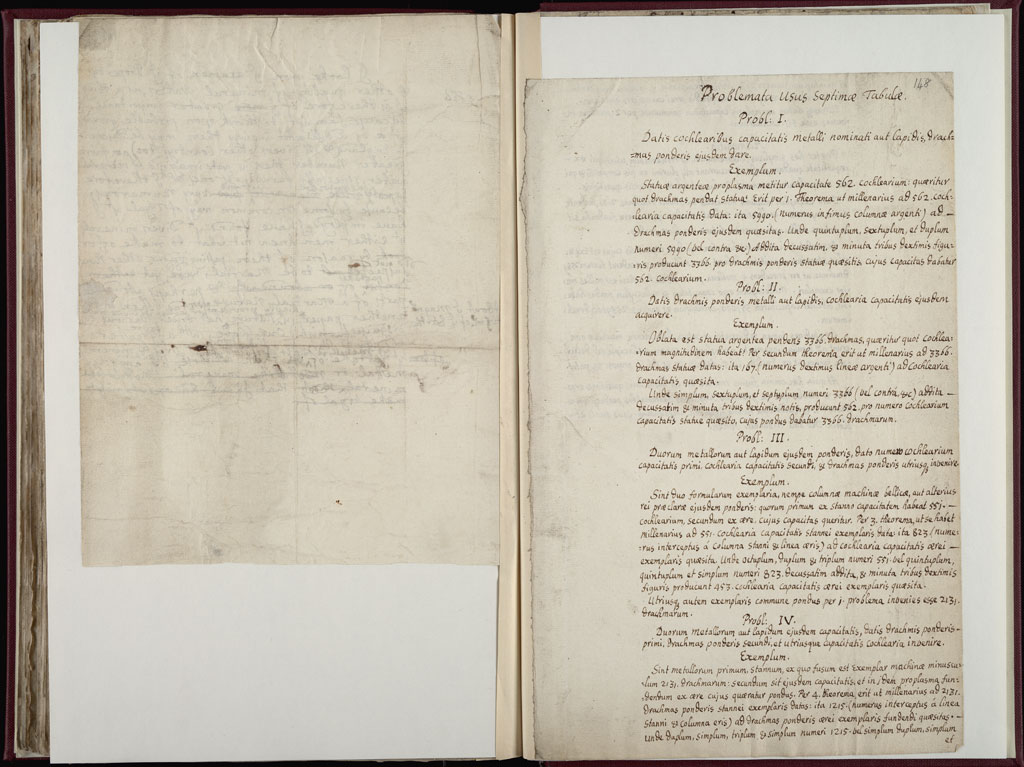 148
Problemata Usus Septimæ Tabulæ.
Probl: I.
Datis cochlearibus capacitatis metalli nominati aut lapidis, drach-
-mas ponderis ejusdem dare.
Exemplum.
Statuæ argenteæ proplasma metitur capacitate 562. cochlearium: quæritur
quot drachmas pendat statua? Erit per 1. Theorema ut millenarius ad 562. coch-
-learia capacitatis data: ita 5990. (numerus infimus columnæ argenti) ad
drachmas ponderis ejusdem quæsitas. Unde quintuplum, sextuplum, et duplum
numeri 5990 (vel contra &c) Addita decussatim, & minuta tribus dextimis figu-
-ris producunt 3366. pro drachmis ponderis statuæ quæsitis, cujus capacitas dabatur
562. cochlearium.
Probl: II.
Datis drachmis ponderis metalli aut lapidis, cochlearia capacitatis ejusdem
acquirere.
Exemplum.
Oblata est statua argentea pendens 3366. drachmas, quæritur quot cochlea-
-rium magnitudinem habeat? Per secundum theorema erit ut millenarius ad 3366.
drachmas statuæ datas: ita 167. (numerus dextimus lineæ argenti) ad Cochlearia
capacitatis quæsita.
Unde simplum, sextuplum, et septuplum numeri 3366 (vel contra, &c) addita
decussatim & minuta tribus dextimis notis, producunt 562. pro numero cochlearium
capacitatis statuæ quæsito, cujus pondus dabatur 3366. drachmarum.
Probl: III.
Duorum metallorum aut lapidum ejusdem ponderis, dato numero cochlearium
capacitatis primi, cochlearia capacitatis secundi, & drachmas ponderis utriusq invenire.
Exemplum.
Sint duo formularum exemplaria, nempe columnæ machinæ bellicæ, aut alterius
rei præclaræ ejusdem ponderis: quorum primum ex stanno capacitatem habeat 551.
cochlearium, secundum ex ære, cujus capacitas queritur. Per 3. theorema, ut se habet
millenarius ad 551. cochlearia capacitatis stannei exemplaris data: ita 823 (nume-
-rus interceptus á columna stanni & linea æris) ad cochlearia capacitatis ærei
exemplaris quæsita. Unde octuplum, duplum & triplum numeri 551. vel quintuplum,
quintuplum et simplum numeri 823. decussatim addita, & minuta tribus dextimis
figuris producunt 453. cochlearia capacitatis ærei exemplaris quæsita.
Utriusq autem exemplaris commune pondus per 1. problema invenies esse 2131.
drachmarum.
Probl: IV.
Duorum metallorum aut lapidum ejusdem capacitatis, datis drachmis ponderis
primi, drachmas ponderis secundi, et utriusque capacitatis cochlearia invenire.
Exemplum.
Sint metallorum primum, stannum, ex quo fusum est exemplar machinæ minuscu-
-lum 2131. drachmarum: secundum sit ejusdem capacitatis, et in idem proplasma fun-
dendum ex ære cujus quæratur pondus. Per 4. theorema, erit ut millenarius ad 2131.
drachmas ponderis stannei exemplaris datas: ita 1215. (numerus interceptus á linea
stanni & columna eris) ad drachmas ponderis ærei exemplaris fundendi quæsitas.
Unde duplum, simplum, triplum & simplum numeri 1215. vel simplum duplum, simplum
et